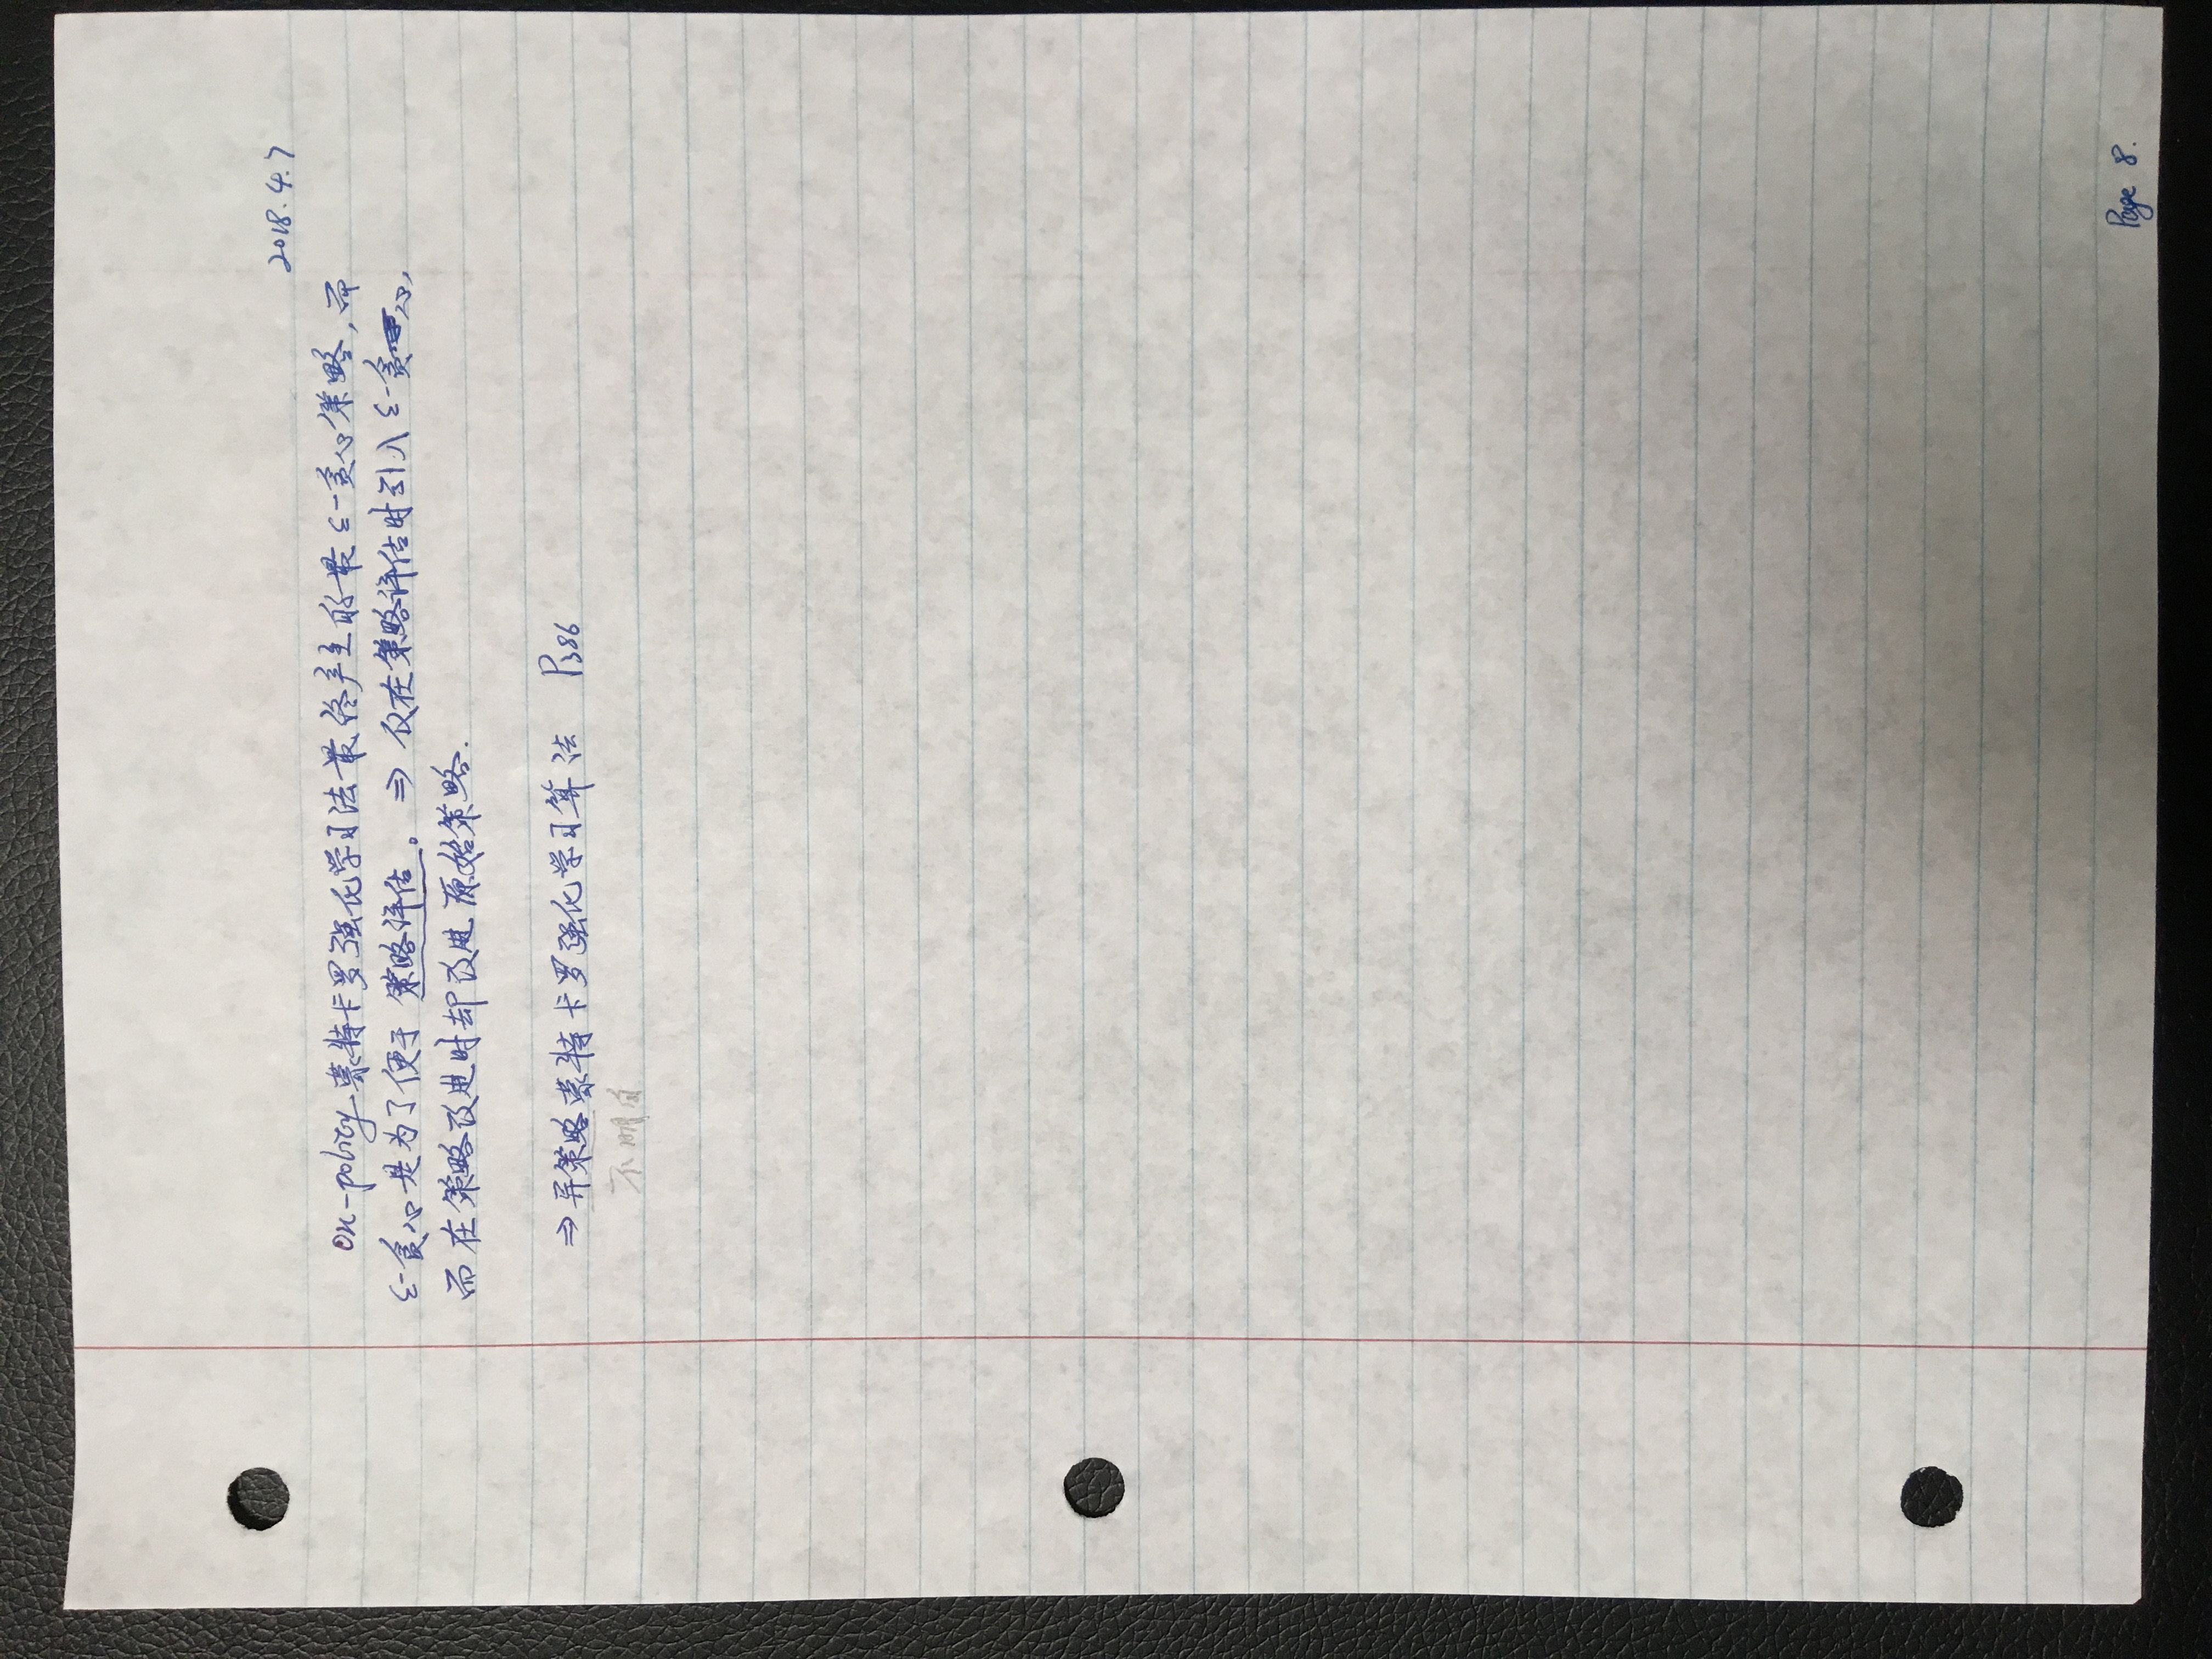 2018.4.7
On-policy 蒙特卡罗强化学习法最终产生的最 ε-贪心策略,而
ε-贪心是为了便于策略评估。⇒ 仅在策略评估时引入 ε-贪心,
而在策略改进时却改进原始策略.
⇒异策略蒙特卡罗强化学习算法 P386
不明白
Page 8.